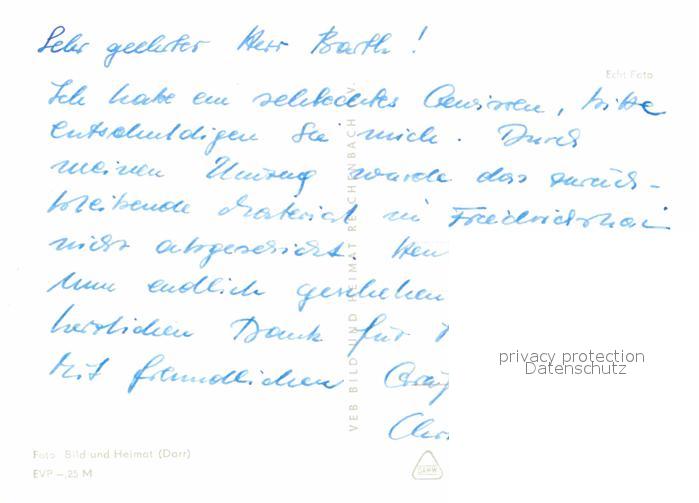 Sehr geehrter Herr Barth!
Echt Foto
Ich habe ein schlechtes Gewissen, bitte
entschuldigen Sie mich. Durch
meinen Umzug wurde das zurück-
bleibende Material in Friedrichshai
nicht abgeschickt.
Nun endlich geschehen
herzlichen Dank für
Mit freundlichen
VEB BILD UND HEIMAT REICHENBACH i. V.
privacy protection
Datenschutz
Foto: Bild und Heimat (Darr)
EVP –,25 M